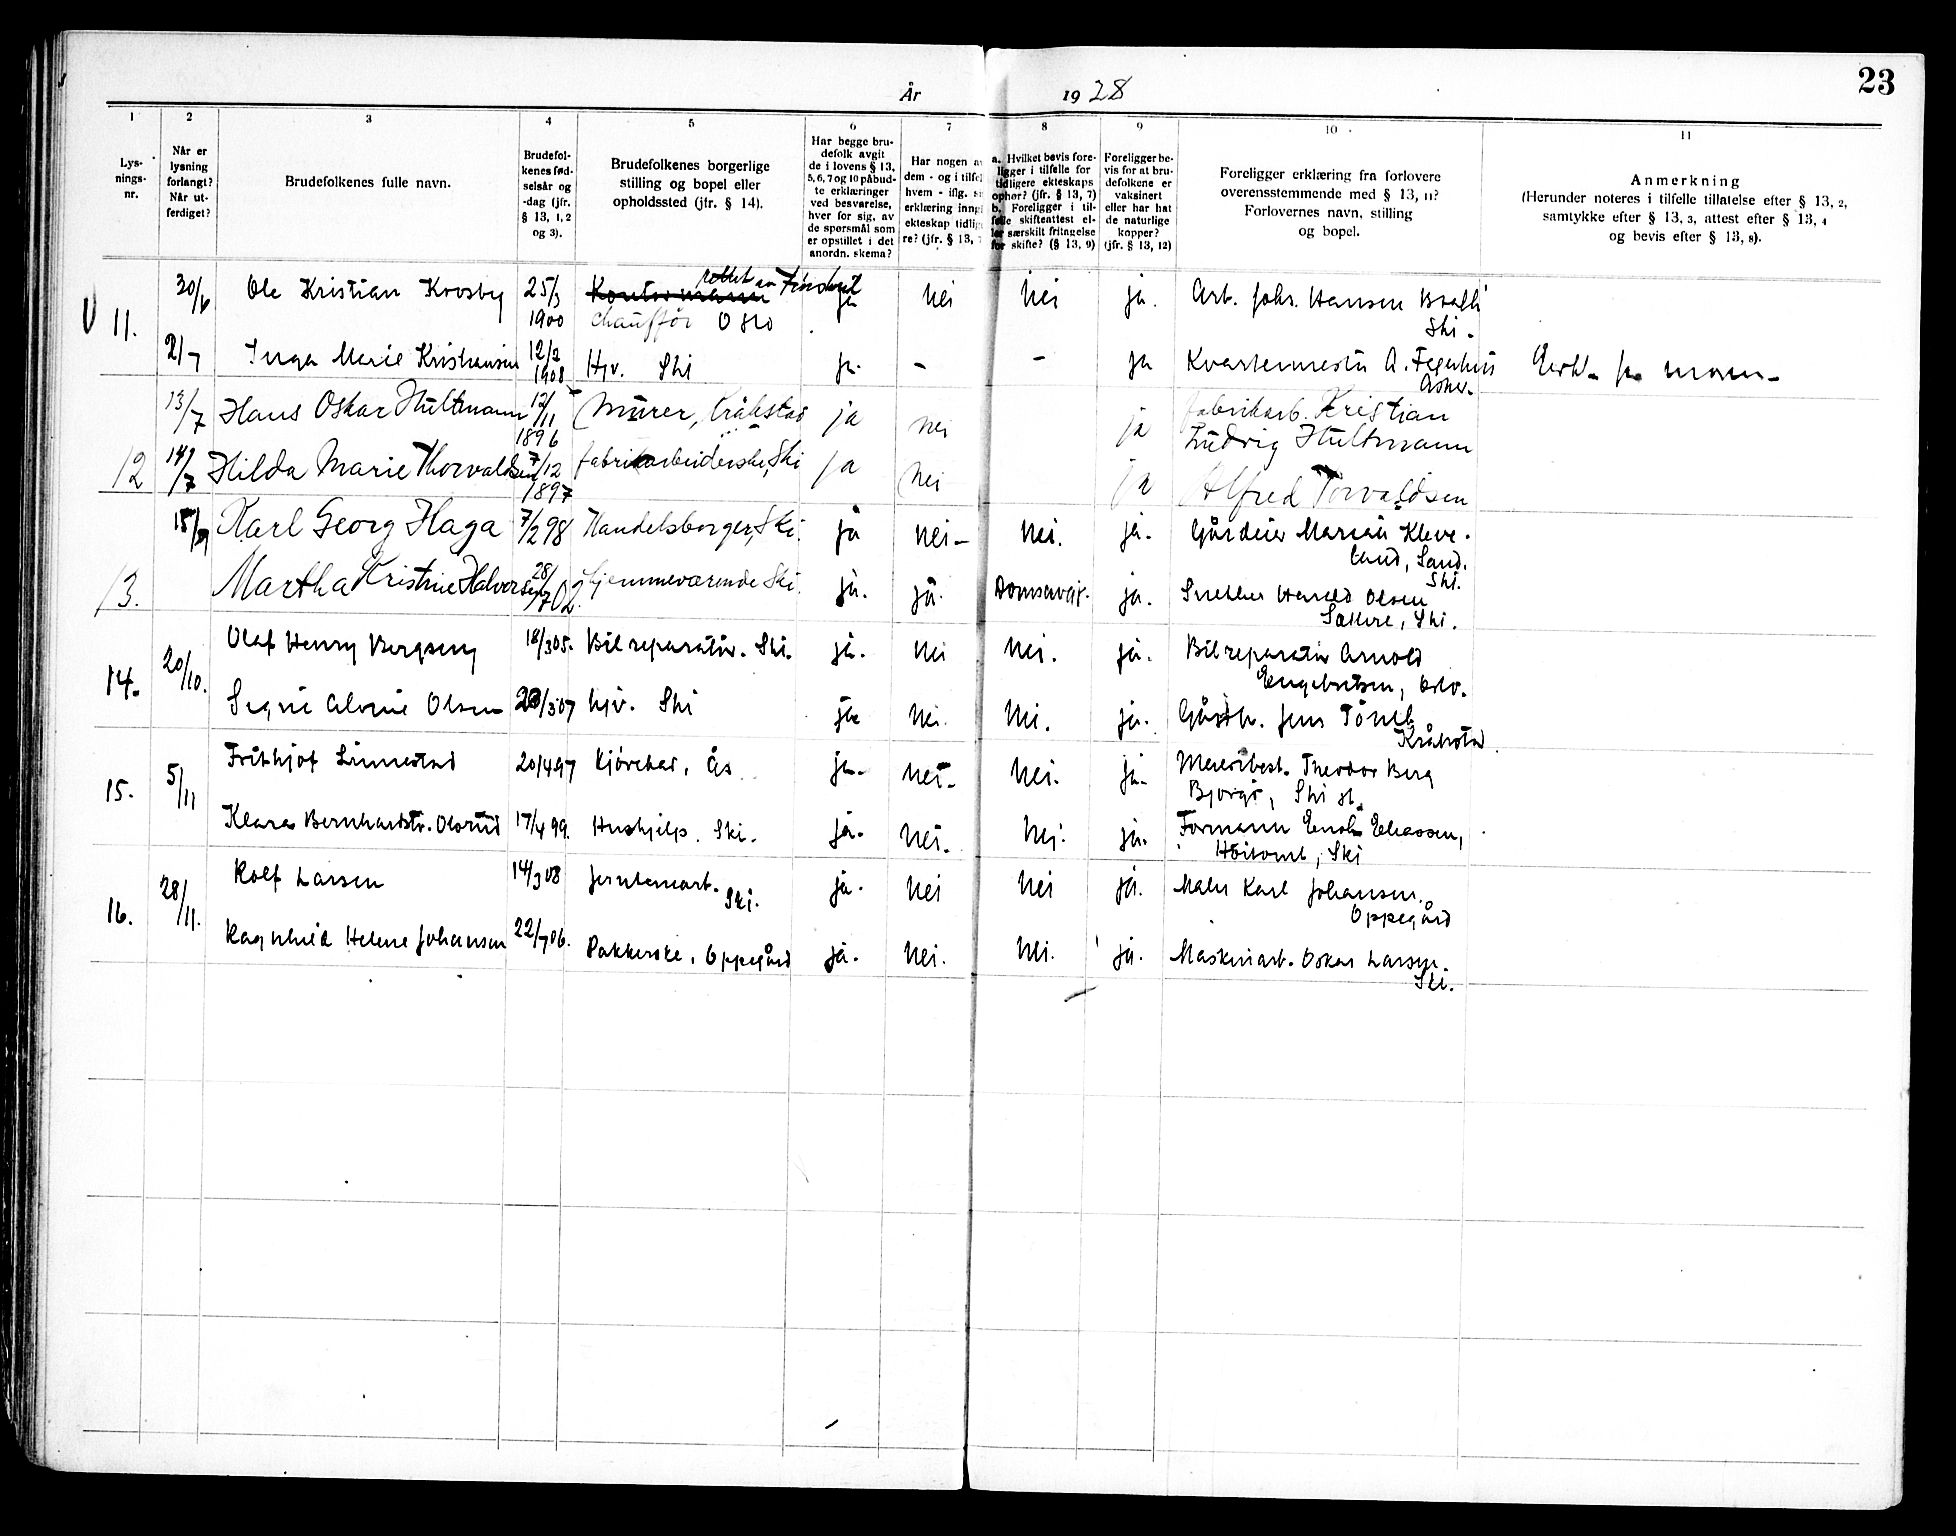 23
År 1928
1 2 3 4 5 6 7 8 9 10 11
Lys-
nings-
nr.
Når er
lysning
forlangt?
Når ut-
ferdiget?
Brudefolkenes fulle navn.
Brudefol-
kenes fød-
selsår og
-dag (jfr.
§ 13, 1, 2
og 3).
Brudefolkenes borgerlige
stilling og bopel eller
opholdssted (jfr. § 14).
Har begge bru-
defolk avgit
de i lovens § 13,
5, 6, 7 og 10 påbud-
te erklæringer
ved besvarelse,
hver for sig, av
de spørsmål som
er opstillet i det
anordn. skema?
Har nogen a
dem - og i tilfel
hvem - iflg. s
erklæring inng
ekteskap tidlig
re? (jfr. § 13, 7
a. Hvilket bevis fore-
ligger i tilfelle for
tidligere ekteskaps
ophør? (jfr. § 13, 7)
b. Foreligger i til-
felle skifteattest el-
ler særskilt fritagelse
for skifte? (§ 13, 9)
Foreligger be-
vis for at bru-
defolkene er
vaksinert
eller har hat
de naturlige
kopper?
(jfr. § 13, 12)
Foreligger erklæring fra forlovere
overensstemmende med § 13, 11?
Forlovernes navn, stilling
og bopel.
Anmerkning
(Herunder noteres i tilfelle tillatelse efter § 13, 2,
samtykke efter § 13, 3, attest efter § 13, 4
og bevis efter § 13, 8).
rettet av
30/6 Ole Kristian Krosby 25/3 Kontormann ja nei nei ja. Arb. Johs. Hansen
11. 1900 chauffør Oslo Ski.
2/7 Inga Marie Kristiansen 12/2 Hjv. Ski ja. - - ja Kvartermester A.
1908 Asker.
13/7 Hans Oskar Hultmann 12/11 Murer, Kråkstad ja nei ja fabrikarb. Kristian
1896 Ludvig Hultmann
12 14/7 Hilda Marie Thorvaldsen 7/12 fabrikarbeiderske, Ski ja nei ja Alfred Torvaldsen
1897
15/9 Karl Georg Haga 7/2 98 Handelsborger, Ski. ja nei - nei. ja. Gårdeier Marius Kleve-
land, Sand.
Ski.
13. Martha Kristine Halvorsen 28/7 02. hjemmeværende Ski. ja. ja. Domsavsg. ja. Snekker Harald Olsen
Sættre, Ski.
Olaf Henry Bergseng 18/3 05. Bilreparatør. Ski. ja. nei nei. ja. Bilreparatør Arnold
14. 20/10. Engebretsen, Oslo.
Signe Alvine Olsen 20/3 07 hjv. Ski ja nei. nei. ja. Gårdbr. Jens Tömt
Kråkstad.
Frithjof Linnestad 20/4 97 Kjørekar, Ås ja. nei. nei. ja. Meieribest. Theodor Berg
15. 5/11 Bjorgi, Ski st.
Klara Bernhardstr. Olsrud 17/4 99. Hushjelp. Ski. ja. nei. nei. ja. Formann Enok Eliassen,
Hoitomt, Ski
Rolf Larsen 14/3 08 Jernbanearb. Ski. ja. nei nei ja. Maler Karl Johansen.
16. 28/11. Oppegård
Ragnhild Helene Johansen 22/7 06. Pakkerske, Oppegård ja. nei. nei. ja. Maskinarb. Oskar Larsen.
Ski.